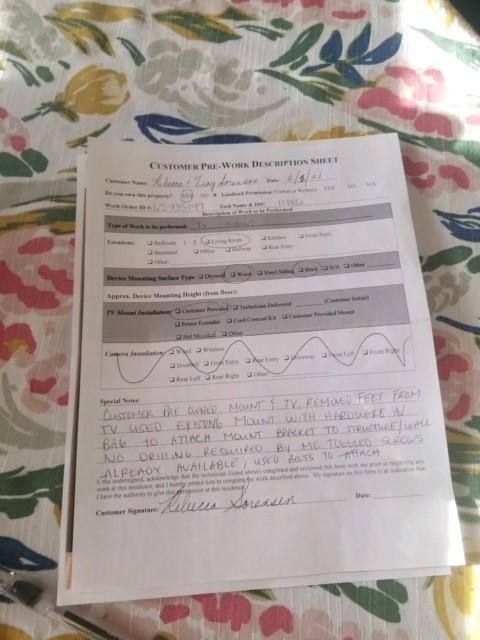 CUSTOMER PRE-WORK DESCRIPTION SHEET
Customer Name: Rebecca & Troy Sorensen Date: 2/2/21
Do you own this property? YES NO Landlord Permission (Verbal or Written) YES NO N/A
Work Order ID #: Tech Name & ID#:
Description of Work to be Performed
Type of Work to be performed: TV MOUNT
Locations: Bedroom 1 2 Living Room Kitchen Front Entry
Basement Office Hallway Rear Entry
Other
Device Mounting Surface Type: Drywall Wood Vinyl Siding Brick N/A Other
Approx. Device Mounting Height (from floor):
TV Mount Installation: Customer Provided Technician Delivered (Customer Initial)
Power Extender Cord Conceal Kit Customer Provided Mount
Not Mounted Other
Camera Installation: Wired Wireless
Doorbell Front Entry Rear Entry Driveway Front Left Front Right
Rear Left Rear Right Other
Special Notes:
CUSTOMER PRE OWNED MOUNT & TV, REMOVED FEET FROM
TV USED EXISTING MOUNT WITH HARDWARE IN
BAG TO ATTACH MOUNT BRACKET TO STRUCTURE/WALL
NO DRILLING REQUIRED BY ME TOGGLED SCREWS
ALREADY AVAILABLE, USED BOLTS TO ATTACH
I, the undersigned, acknowledge that the technician (listed above) completed and reviewed this form with me prior to beginning any
work at this residence, and I hereby permit him to complete the work described above. My signature on this form is an indication that
I have the authority to give this permission at this residence.
Customer Signature: Rebecca Sorensen Date: